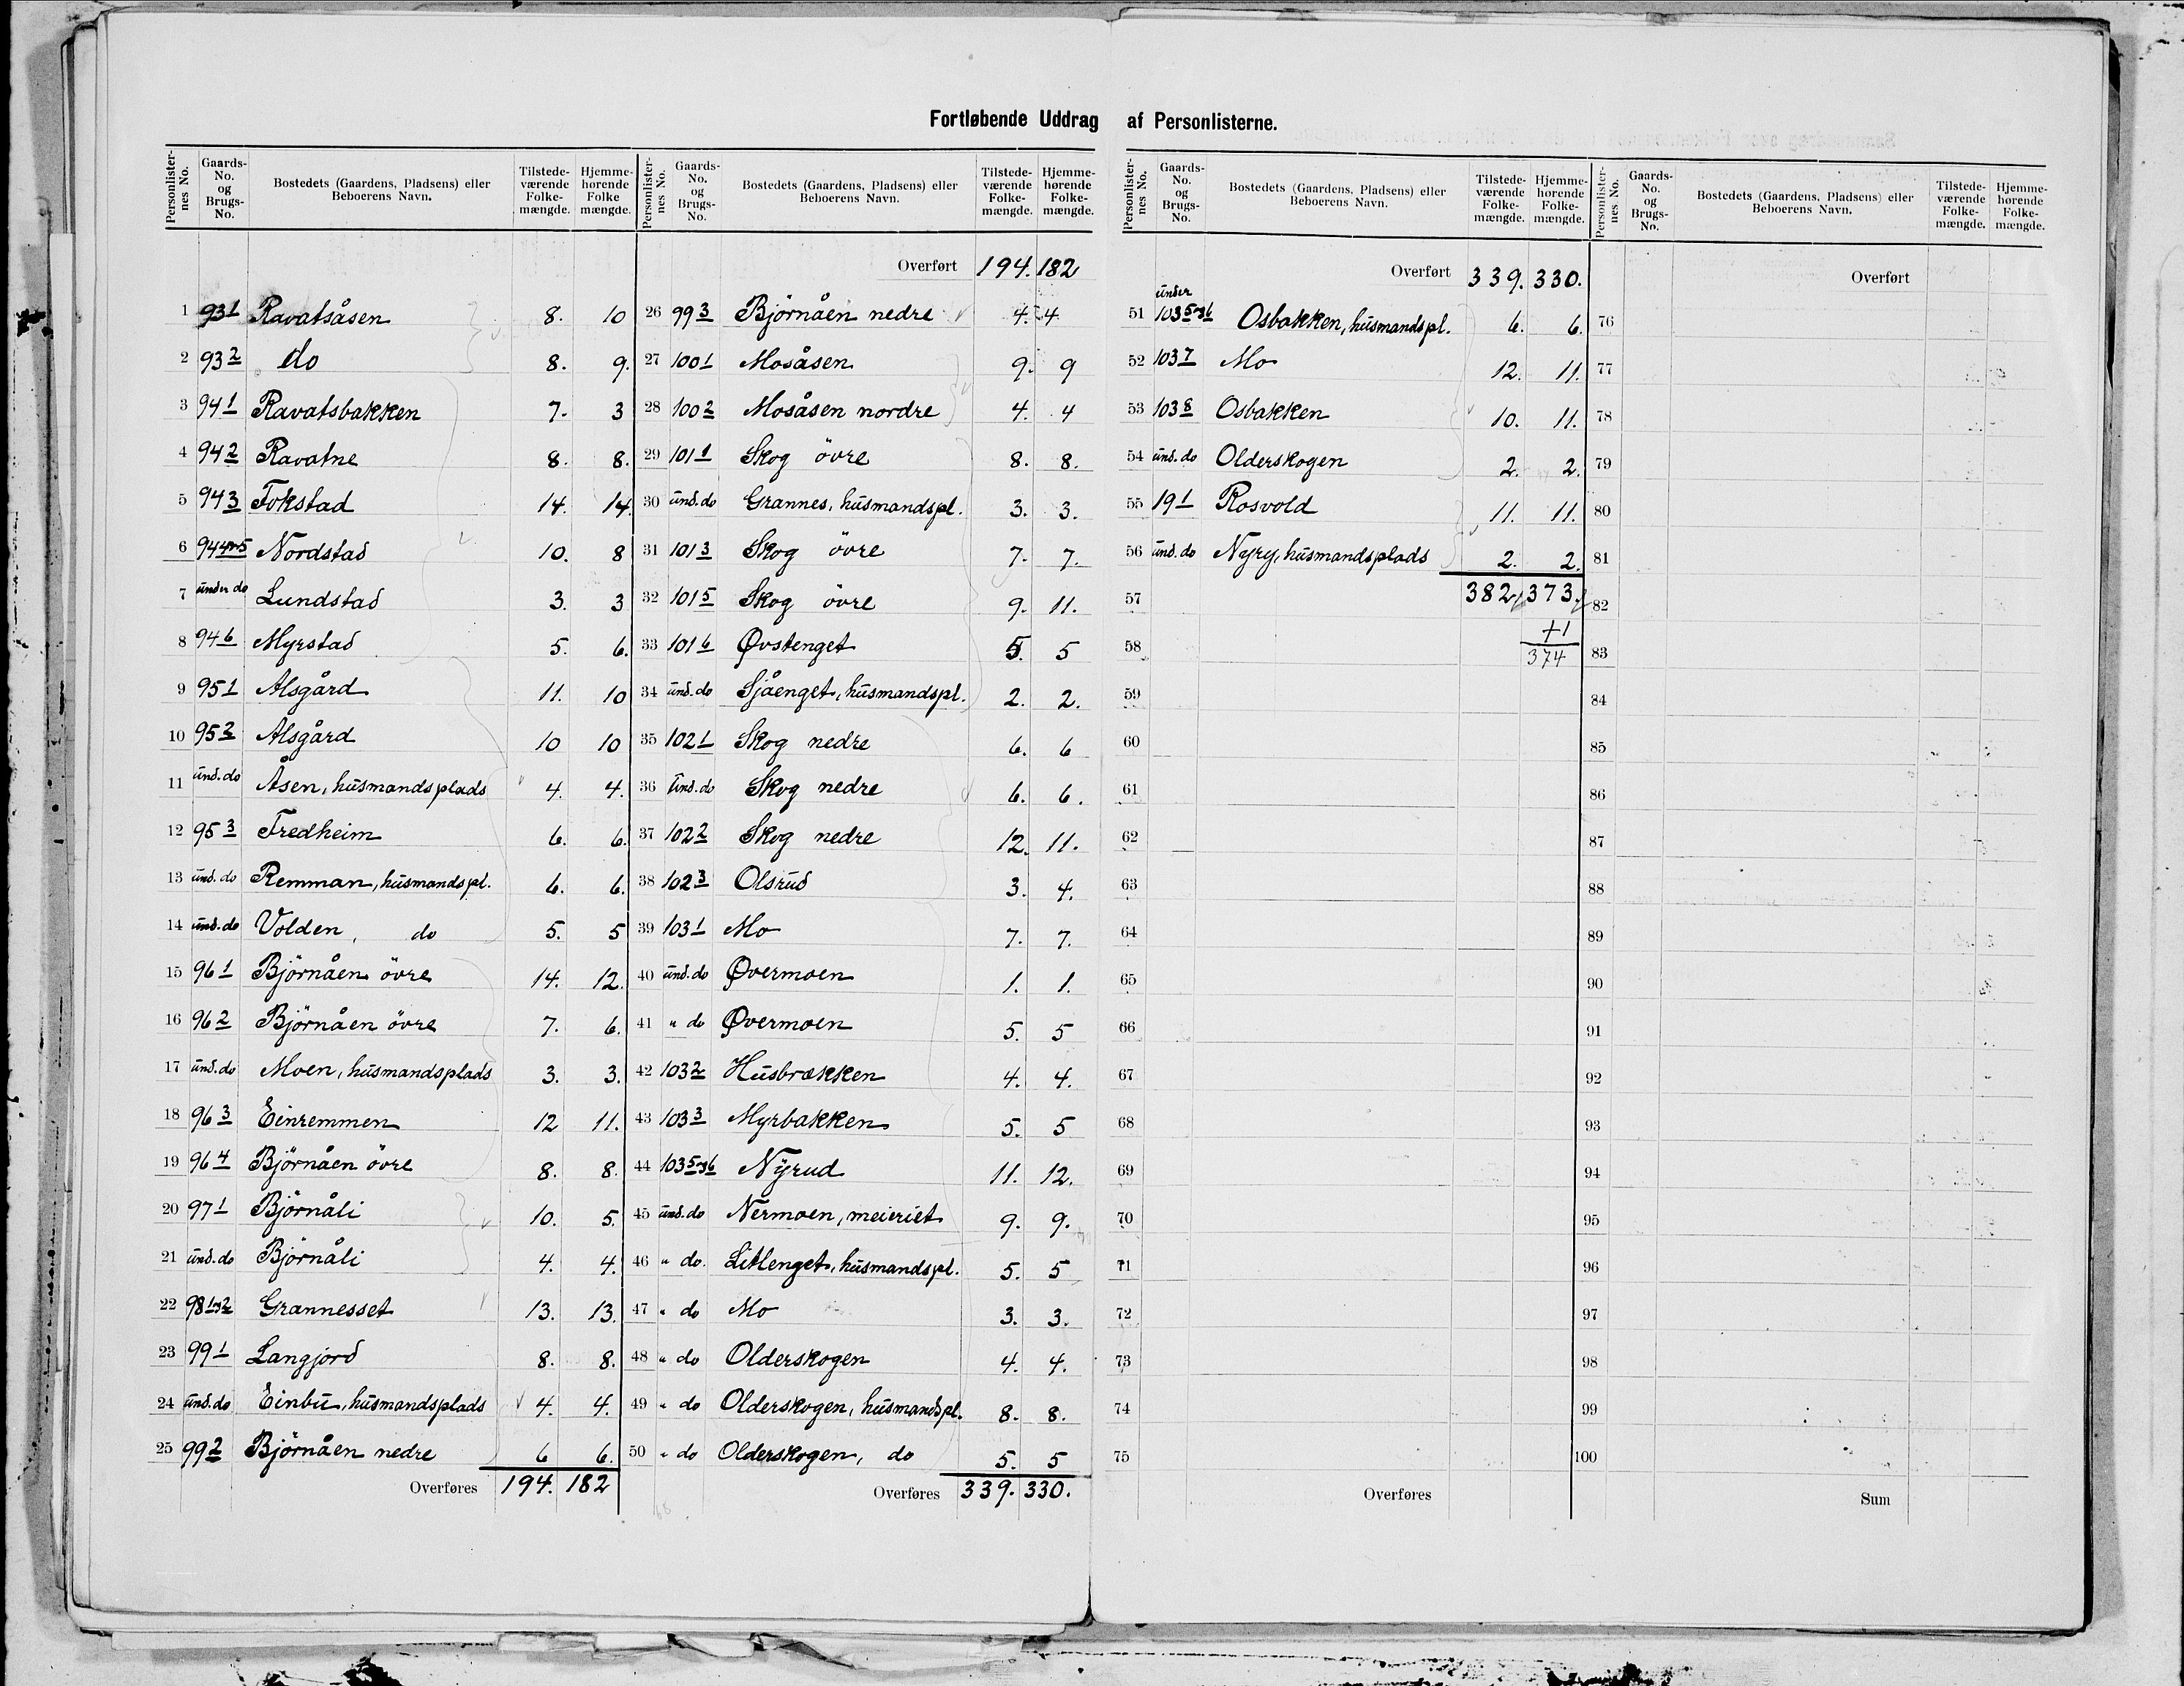 Fortløbende Uddrag af Personlisterne.
Personlister-nes No. Gaards-No. og Brugs-No. Bostedets (Gaardens, Pladsens) eller Beboerens Navn. Tilstede-værende Folke-mængde. Hjemme-hørende Folke mængde.
1 93 1 Ravatsåsen 8. 10
2 93 2 do 8. 9.
3 94 1 Ravatsbakken 7. 3
4 94 2 Ravatne 8. 8.
5 94 3 Fokstad 14. 14.
6 94 4 og 5 Nordstad 10. 8
7 under do Lundstad 3. 3
8 94 6 Myrstad 5. 6.
9 95 1 Alsgård 11. 10
10 95 2 Alsgård 10 10
11 und. do Åsen, husmandsplads 4. 4.
12 95 3 Fredheim 6. 6.
13 und. do Remman, husmandspl. 6. 6.
14 und. do Volden, do 5. 5
15 96 1 Björnåen övre 14. 12.
16 96 2 Björnåen övre 7. 6.
17 und. do Moen, husmandsplads 3. 3.
18 96 3 Einremmen 12 11.
19 96 4 Björnåen övre 8. 8.
20 97 1 Björnåli 10. 5.
21 und. do Björnåli 4. 4.
22 98 1 og 2 Grannesset 13. 13.
23 99 1 Langjord 8. 8.
24 und. do Einbu, husmandsplads 4. 4.
25 99 2 Björnåen nedre 6 6.
Overføres 194. 182
Personlister-nes No. Gaards-No. og Brugs-No. Bostedets (Gaardens, Pladsens) eller Beboerens Navn. Tilstede-værende Folke-mængde. Hjemme-hørende Folke-mængde.
Overført 194. 182
26 99 3 Björnåen nedre 4. 4
27 100 1 Mosåsen 9. 9
28 100 2 Mosåsen nordre 4. 4
29 101 1 Skog övre 8. 8.
30 und. do Grannes, husmandspl. 3. 3.
31 101 3 Skog övre 7. 7.
32 101 5 Skog övre 9. 11.
33 101 6 Øvstenget 5. 5
34 und. do Sjåenget, husmandspl. 2. 2.
35 102 1 Skog nedre 6. 6
36 Und. do Skog nedre 6. 6.
37 102 2 Skog nedre 12. 11.
38 102 3 Olsrud 3. 4.
39 103 1 Mo 7. 7.
40 und. do Øvermoen 1. 1.
41 " do Øvermoen 5. 5
42 103 2 Husbrækken 4. 4.
43 103 3 Myrbakken 5. 5
44 103 5 og 6 Nyrud 11. 12.
45 und. do Nermoen, meieriet 9. 9.
46 " do. Litlenget, husmandspl. 5. 5
47 " do Mo 3. 3.
48 " do Olderskogen 4. 4.
49 " do Olderskogen, husmandspl. 8. 8.
50 " do Olderskogen, do 5. 5
Overføres 339. 330.
Personlister-nes No. Gaards-No. og Brugs-No. Bostedets (Gaardens, Pladsens) eller Beboerens Navn. Tilstede-værende Folke-mængde. Hjemme-hørende Folke-mængde.
Overført 339. 330.
51 under 103 5 og 6 Osbakken, husmandspl. 6. 6.
52 103 7 Mo 12. 11.
53 103 8 Osbakken 10. 11.
54 und. do Olderskogen 2. 2.
55 19 1 Rosvold 11. 11.
56 und. do Nyry, husmandsplads 2. 2.
57 382. 373.
+1
58 374
59
60
61
62
63
64
65
66
67
68
69
70
71
72
73
74
75
Overføres
Personlister-nes No. Gaards-No. og Brugs-No. Bostedets (Gaardens, Pladsens) eller Beboerens Navn. Tilstede-værende Folke-mængde. Hjemme-hørende Folke-mængde.
Overført
76
77
78
79
80
81
82
83
84
85
86
87
88
89
90
91
92
93
94
95
96
97
98
99
100
Sum